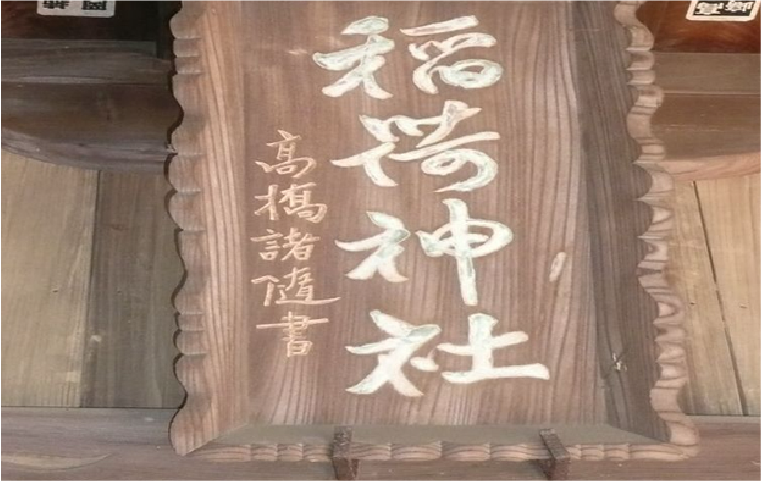 稲荷神社
高橋諸随書